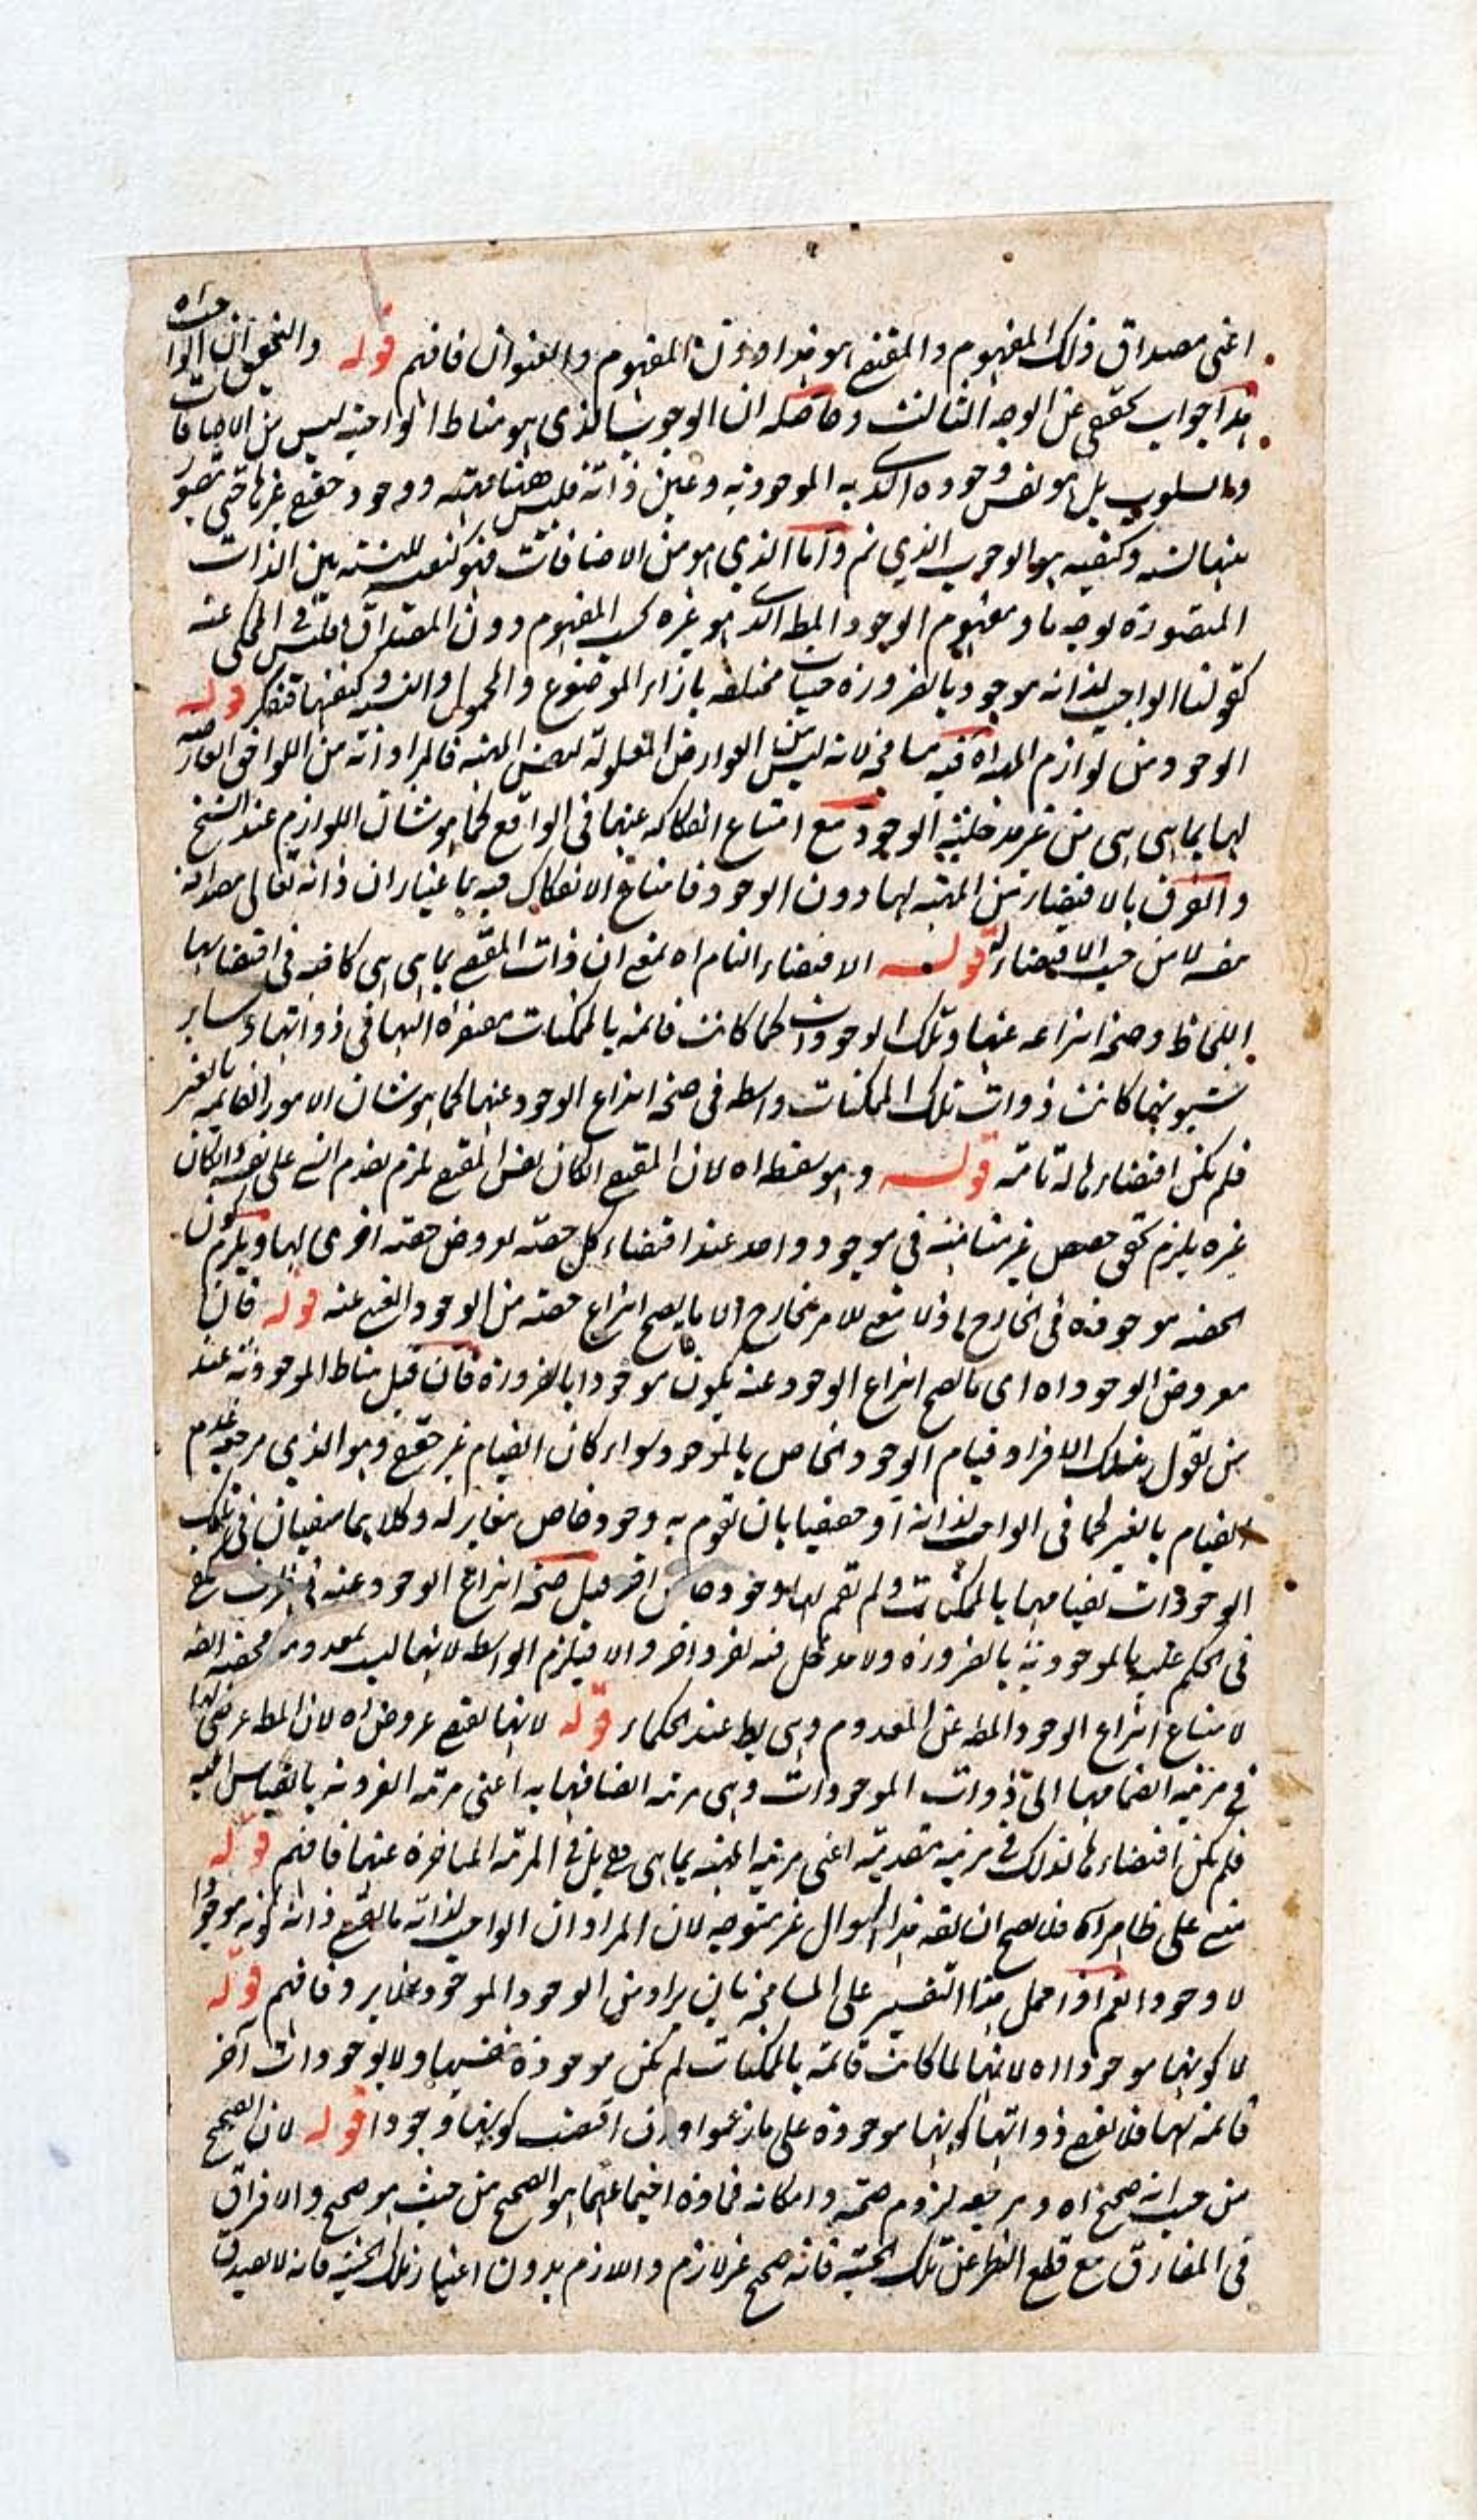 اعنى مصداق ذلك المفهوم والمقتضى هو هذا دون المفهوم والعنوان فافهم قوله والتحقيق ان الواجب اه
هذا جواب تحققى عن الوجه الثالث وحاصله ان الوجوب الذى هو مناط الواجبية ليس من الاضافات
والسلوب بل هو نفس وجوده الذى به الموجودية وعين ذاته فليس هنا مهية ووجود حقيقى غيرها حتى يتصور
بينهما نسبة وكيفية هو الوجوب الذى ثم واما الذى هو من الاضافات فهو كيفية للنسبة بين الذات
المتصورة بوجه ما ومفهوم الوجود المط الذى هو غيره بحسب المفهوم دون المصداق فليس فى المحكى عنه
كقولنا الواجب لذاته موجود بالضرورة حيثيات مختلفة بازاء الموضوع والمحمول والنسبة وكيفيتها فتفكر قوله
الوجود من لوازم المهية اه فيه مسامحة لانه ليس من العوارض المعلولة لنفس المهية فالمراد انه من اللواحق العارضة
لها بما هى هى من غير مدخلية الوجود مع امتناع انفكاكه عنها فى الواقع كما هو شان اللوازم عند الشيخ
والفرق بالاقتضاء من المهية لها دون الوجود فامتناع الانفكاك فيه باعتبار ان ذاته تعالى مصداق
نفسه لا من حيث الاقتضاء له قوله الاقتضاء التام اه يعنى ان ذات المقتضى بما هى هى كافية فى اقتضائها
اللحاظ وصحة انتزاعه عنها وتلك الوجودات لما كانت قائمة بالممكنات مفتقرة اليها فى ذواتها وساير
شيونها كانت ذوات تلك الممكنات واسطة فى صحة انتزاع الوجود عنها كما هو شان الامور القايمة بالغير
فلم يكن اقتضاءها له تامة قوله وهو سفسطة اه لان المقتضى ان كان نفس المقتضى لزم تقدم الشى على نفسه وان كان
غيره يلزم تحقق حصص غير متناهية فى موجود واحد عند اقتضاء كل حصة لعروض حصة اخرى لها ويلزم كون
الحصة موجودة فى الخارج اذ لا نعنى للامر الخارج الا ما يصح انتزاع حصة من الوجود الغير عنه قوله فان
معروض الوجود اه اى ما يصح انتزاع الوجود عنه يكون موجودا بالضرورة فان قيل مناط الموجودية عند
من يقول بتلك الافراد قيام الوجود الخاص بالموجود سواء كان القيام غير حقيقى وهو الذى مرجعه عدم
القيام بالغير كما فى الواجب لذاته او حقيقيا بان تقوم به وجود خاص مغاير له وكلاهما منفيان فى تلك
الوجودات لقيامها بالممكنات ولم تقم لها وجود خاص اخر قيل صحة انتزاع الوجود عنه فى ظرف
فى الحكم عليه بالموجودية بالضرورة ولا مدخل فيه لفرد اخر والا فيلزم الواسطة لانها ليست بمعدومة محضة
لامتناع انتزاع الوجود المط عن المعدوم وهى بط عند الحكماء قوله لانها تقتضى عروض اه لان المط عرضى لها
فى مرتبة انضمامها الى ذوات الموجودات وهى مرتبة اتصافها به اعنى مرتبة الفردية بالقياس اليه
فلم يكن اقتضاءها لذلك فى مرتبة متقدمة اعنى مرتبة المهية بما هى هى بل فى المرتبة المتاخرة عنها فافهم قوله
على ظاهره اه فلا يصح ان يقه هذا السوال غير متوجه لان المراد ان الواجب لذاته ما يقتضى ذاته كونه موجودا
لا وجودا نعم اذا حمل هذا التفسير على المسامحة بان يراد من الوجود الموجود فلا يرد فافهم قوله
لا كونها موجودا اه لانها لما كانت قائمة بالممكنات لم تكن موجودة بنفسها ولا بوجودات آخر
قائمة بها فلا تقتضى ذواتها كونها موجودة على ما زعموا وان اقتضت كونها وجودا قوله لان الصحيح
من حيث انه صحيح اه ومرجعه لزوم صحته وامكانه فمادة اجتماعهما هو الصحيح من حيث هو صحيح والافراق
فى المفارق مع قطع النظر عن تلك الحيثية فانه صحيح غير لازم واللازم بدون اعتبار تلك الحيثية فانه لا يصدق